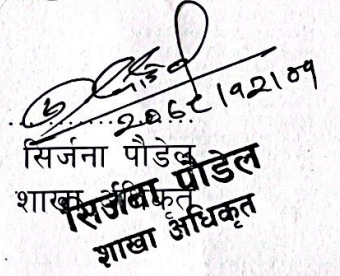 २०६८।१२।०१
सिर्जना पौडेल
शाखा अधिकृत
सिर्जना पौडेल
शाखा अधिकृत